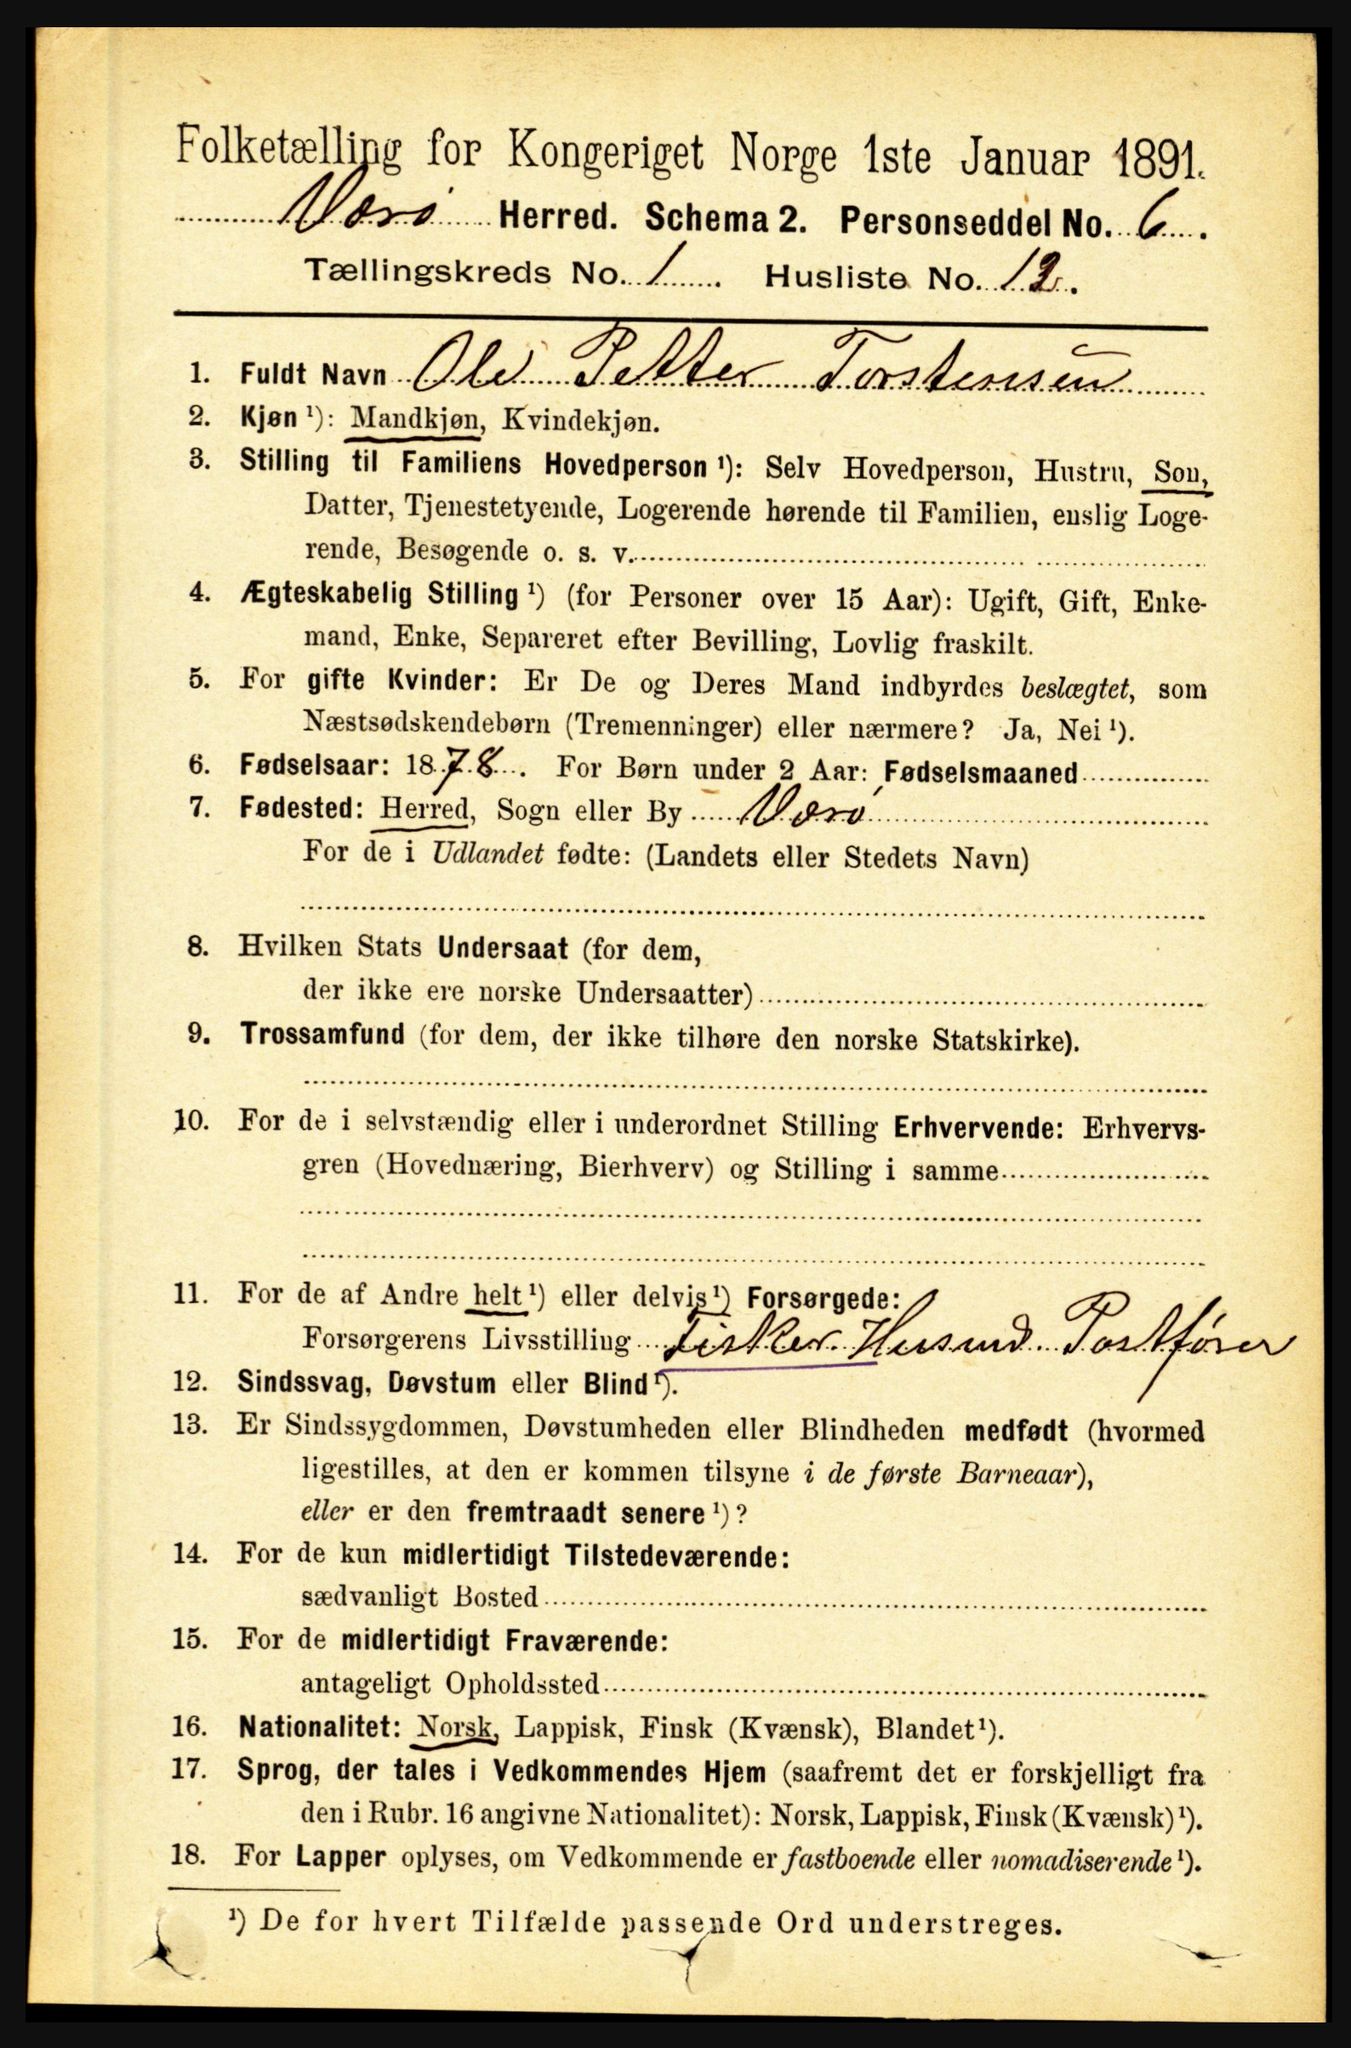 Folketælling for Kongeriget Norge 1ste Januar 1891.
Værø Herred. Schema 2. Personseddel No. 6.
Tællingskreds No. 1. Husliste No. 12.
1. Fuldt Navn Ole Petter Torstensen
2. Kjøn ¹): Mandkjøn, Kvindekjøn.
3. Stilling til Familiens Hovedperson ¹): Selv Hovedperson, Hustru, Søn,
Datter, Tjenestetyende, Logerende hørende til Familien, enslig Loge-
rende, Besøgende o. s. v.
4. Ægteskabelig Stilling ¹) (for Personer over 15 Aar): Ugift, Gift, Enke-
mand, Enke, Separeret efter Bevilling, Lovlig fraskilt.
5. For gifte Kvinder: Er De og Deres Mand indbyrdes beslægtet, som
Næstsødskendebørn (Tremenninger) eller nærmere? Ja, Nei ¹).
6. Fødselsaar: 1878. For Børn under 2 Aar: Fødselsmaaned
7. Fødested: Herred, Sogn eller By Værø
For de i Udlandet fødte: (Landets eller Stedets Navn)
8. Hvilken Stats Undersaat (for dem,
der ikke ere norske Undersaatter)
9. Trossamfund (for dem, der ikke tilhøre den norske Statskirke).
10. For de i selvstændig eller i underordnet Stilling Erhvervende: Erhvervs-
gren (Hovednæring, Bierhverv) og Stilling i samme
11. For de af Andre helt ¹) eller delvis ¹) Forsørgede:
Forsørgerens Livsstilling Fisker Husmd Postfører
12. Sindssvag, Døvstum eller Blind ¹).
13. Er Sindssygdommen, Døvstumheden eller Blindheden medfødt (hvormed
ligestilles, at den er kommen tilsyne i de første Barneaar),
eller er den fremtraadt senere ¹)?
14. For de kun midlertidigt Tilstedeværende:
sædvanligt Bosted
15. For de midlertidigt Fraværende:
antageligt Opholdssted
16. Nationalitet: Norsk, Lappisk, Finsk (Kvænsk), Blandet ¹).
17. Sprog, der tales i Vedkommendes Hjem (saafremt det er forskjelligt fra
den i Rubr. 16 angivne Nationalitet): Norsk, Lappisk, Finsk (Kvænsk) ¹).
18. For Lapper oplyses, om Vedkommende er fastboende eller nomadiserende ¹).
¹) De for hvert Tilfælde passende Ord understreges.